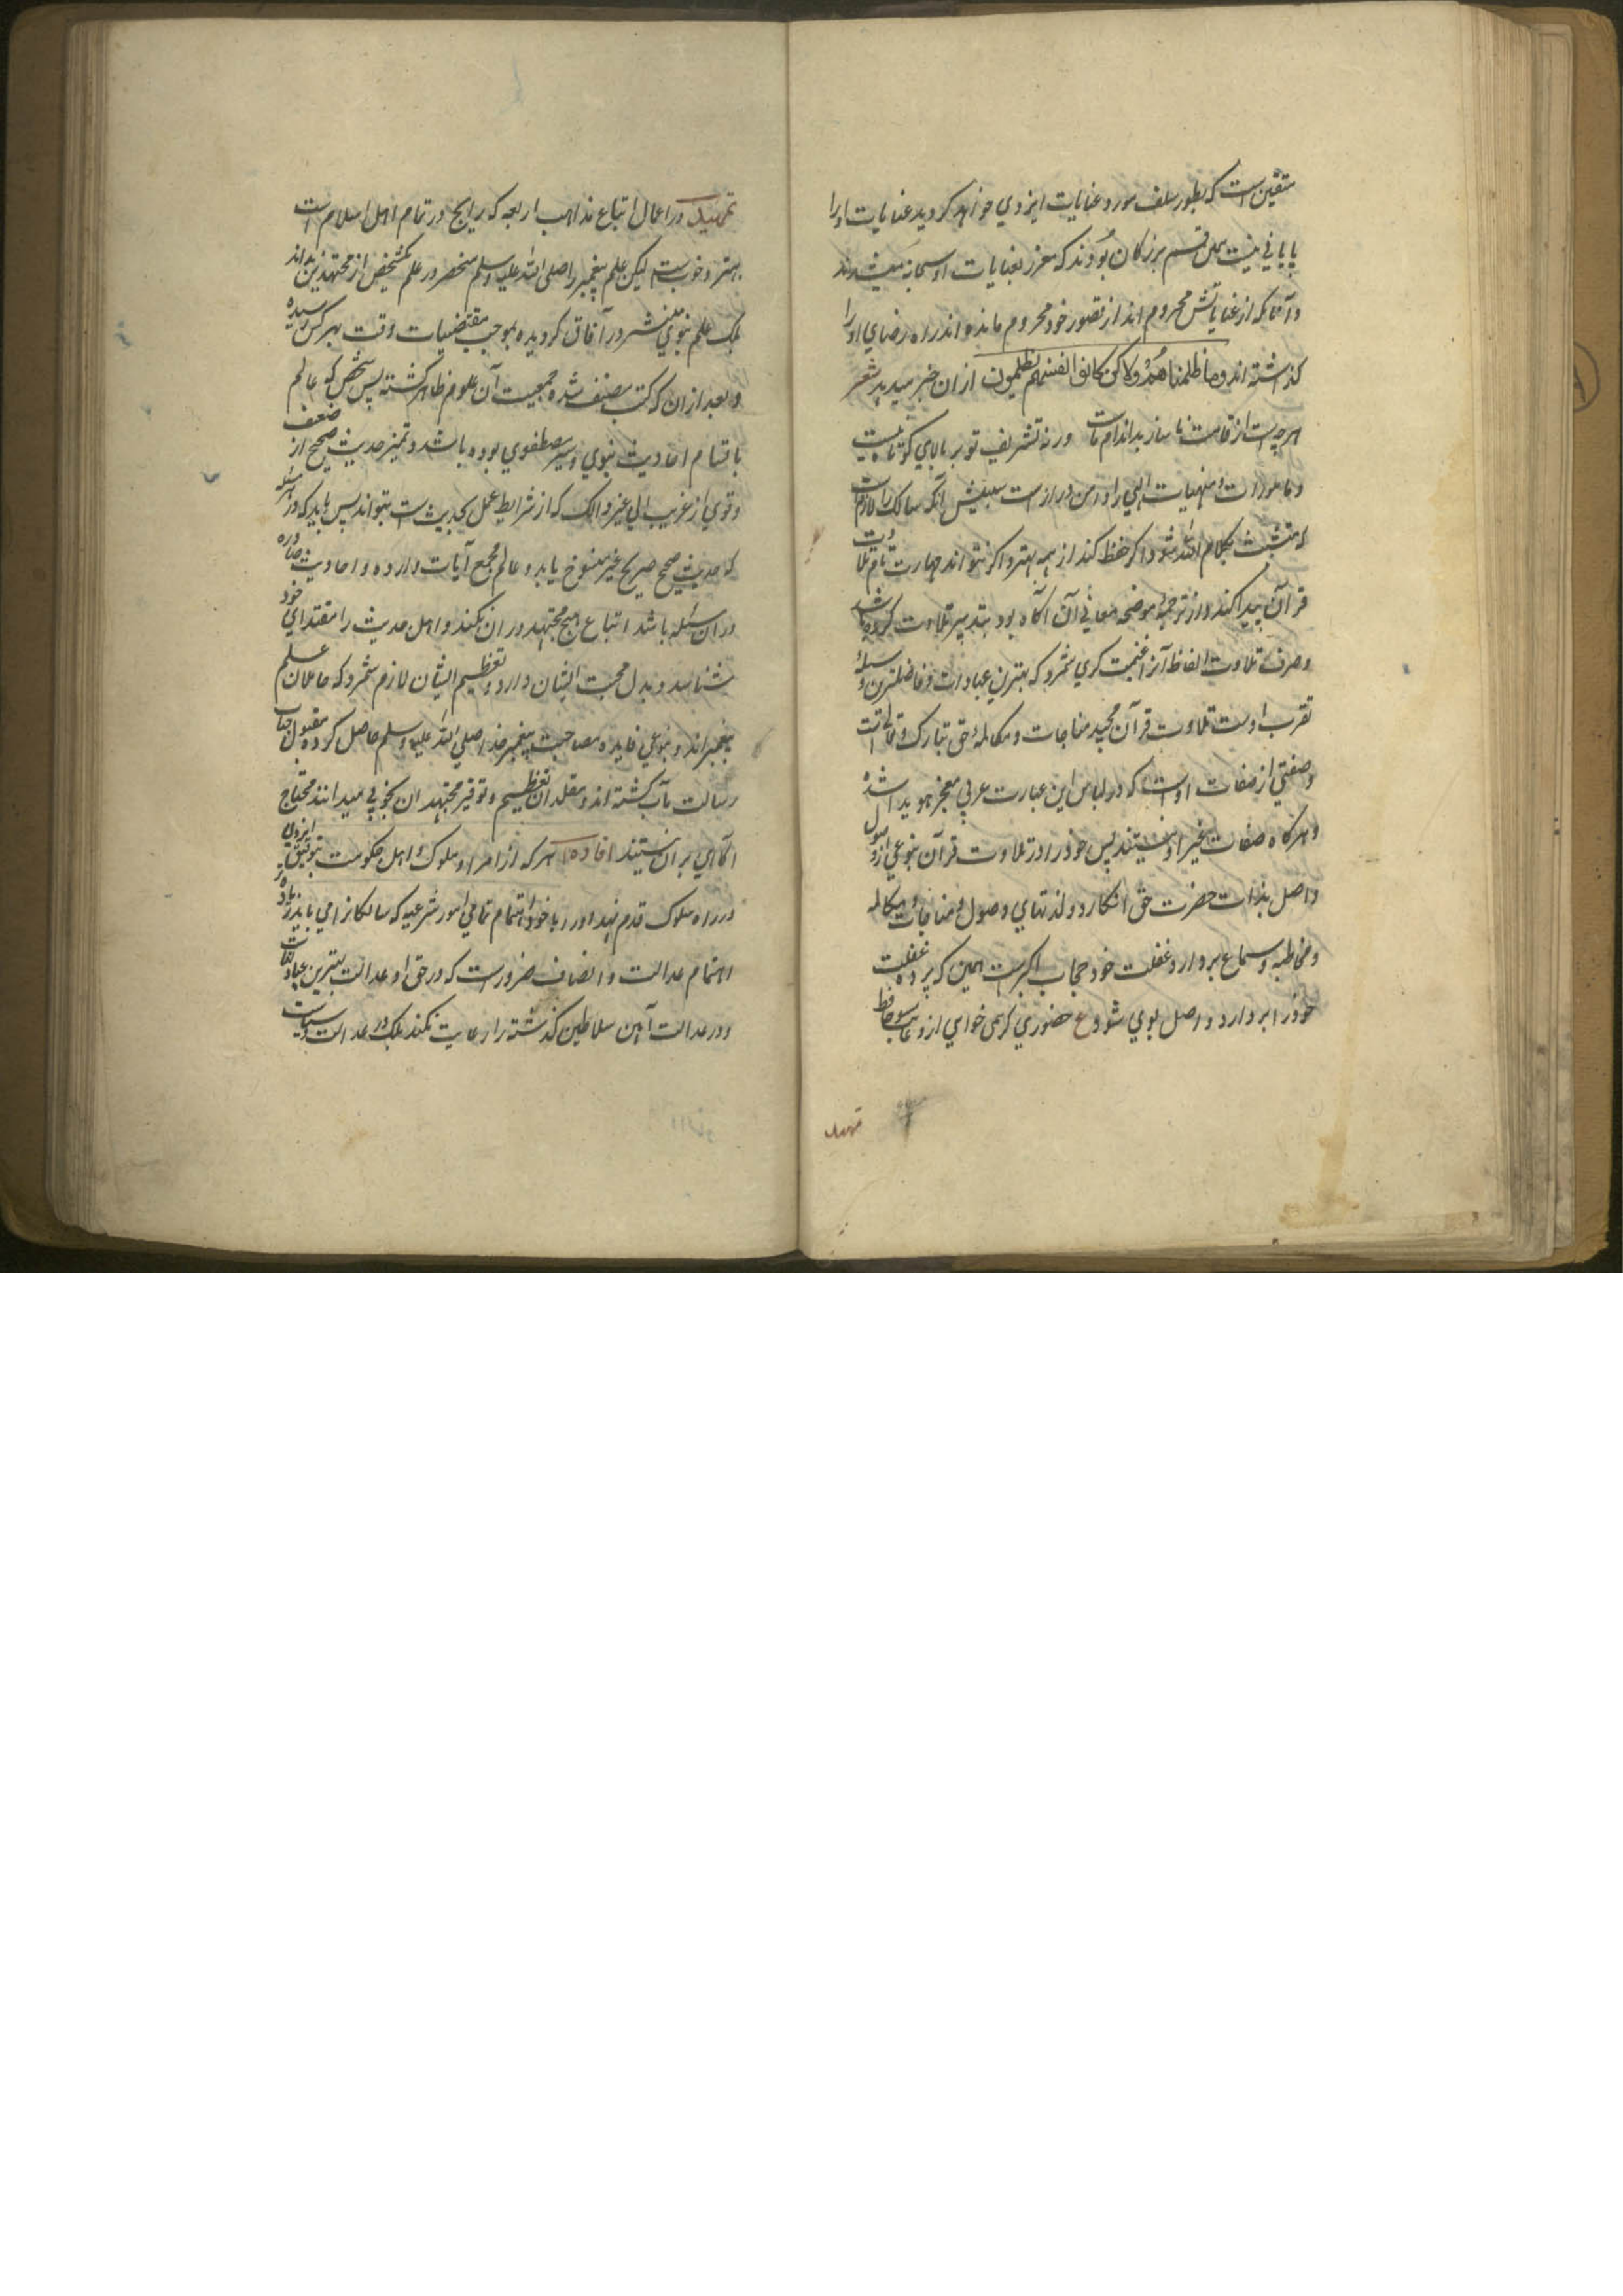 متقین است که بطور سلف مورد عنایات ایزدی خواهد کردید عنایات او را
پایانی نیست همین قسم بزرکان بودند که معزز بعنایات او سبحانه میشدند
و آنانکه از عنایاتش محروم اند از قصور خود محروم مانده اند راه رضای او را
کذاشته اند وما ظلمناهم ولاکن کانوا انفسهم یظلمون ازان خبر میدهد شعر
هر چه هست از قامت ناساز بد اندام ماست ورنه تشریف تو بر بالای کس کوتاه نیست
و مامورات و منهیات الهی را دامن دراز است سبیلش آنکه سالک را لازم است
که متشبث بکلام الله شود اکر حفظ کند از همه بهتر و اکر نتواند مهارت تام تلاوت
قرآن پیدا کند و از ترجمه موضحه معانی آن آکاه بود بتدبیر تلاوت کرده باشد
و صرف تلاوت الفاظ آنرا غنیمت کبری شمرد که بهترین عبادات و فاضلترین وسیله
تقرب اوست تلاوت قرآن مجید مناجات و مکالمه حق تبارک و تعالی است
و صفتی از صفات اوست که در لباس این عبارت عربی معجز هویدا شده
و هرکاه صفات غیر او نیستند پس خود را در تلاوت قرآن بنوعی از وصول
واصل بذات حضرت حق انکارد و لذتهای وصول و مناجات و مکالمه
و مخاطبه و سماع بردارد غفلت خود حجاب اکبر است همین که پرده غفلت
خود را بردارد واصل بوی شود ع حضوری کر همی خواهی ازو غایب مشو حافظ
تمهید
تمهید در اعمال اتباع مذاهب اربعه که رایج در تمام اهل اسلام است
بهتر و خوب است لیکن علم پیغمبر را صلی الله علیه و سلم منحصر در علم یکشخص از مجتهدین نداند
بلکه علم نبوی منتشر در آفاق کردیده بموجب مقتضیات وقت بهر کس رسیده
و بعد ازان که کتب تصنیف شده جمعیت آن علوم ظاهر کشته پس شخصی که عالم
باقسام احادیث نبوی و سیر مصطفوی بوده باشد و تمیز حدیث صحیح از ضعیف
و قوی از غریب الی غیر ذالک که از شرایط عمل بحدیث است بتواند پس باید که در هر مسئله
که حدیث صحیح صریح غیر منسوخ یابد و عالم بجمیع آیات وارده و احادیث صادره
دران مسئله باشد اتباع هیچ مجتهد دران نکند و اهل حدیث را مقتدای خود
شناسد و بدل محبت ایشان دارد و تعظیم ایشان لازم شمرد که حاملان علم
پیغمبر اند و بنوعی فایده مصاحبت پیغمبر خدا صلی الله علیه و سلم حاصل کرده مقبول جناب
رسالت مآب کشته اند و مقلدان تعظیم و توقیر مجتهدان بخوبی میدانند محتاج
آکاهی بران نیستند افاده هر که از امرا و ملوک و اهل حکومت بتوفیق ایزدی
در راه سلوک قدم نهد او را با خود اهتمام تمامی امور شرعیه که سالکانرا می باید زیاده
اهتمام عدالت و انصاف ضرور است که در حق او عدالت بهترین عبادات است
و در عدالت آیین سلاطین کذشته را رعایت نکند بلکه در عدالت و سیاست